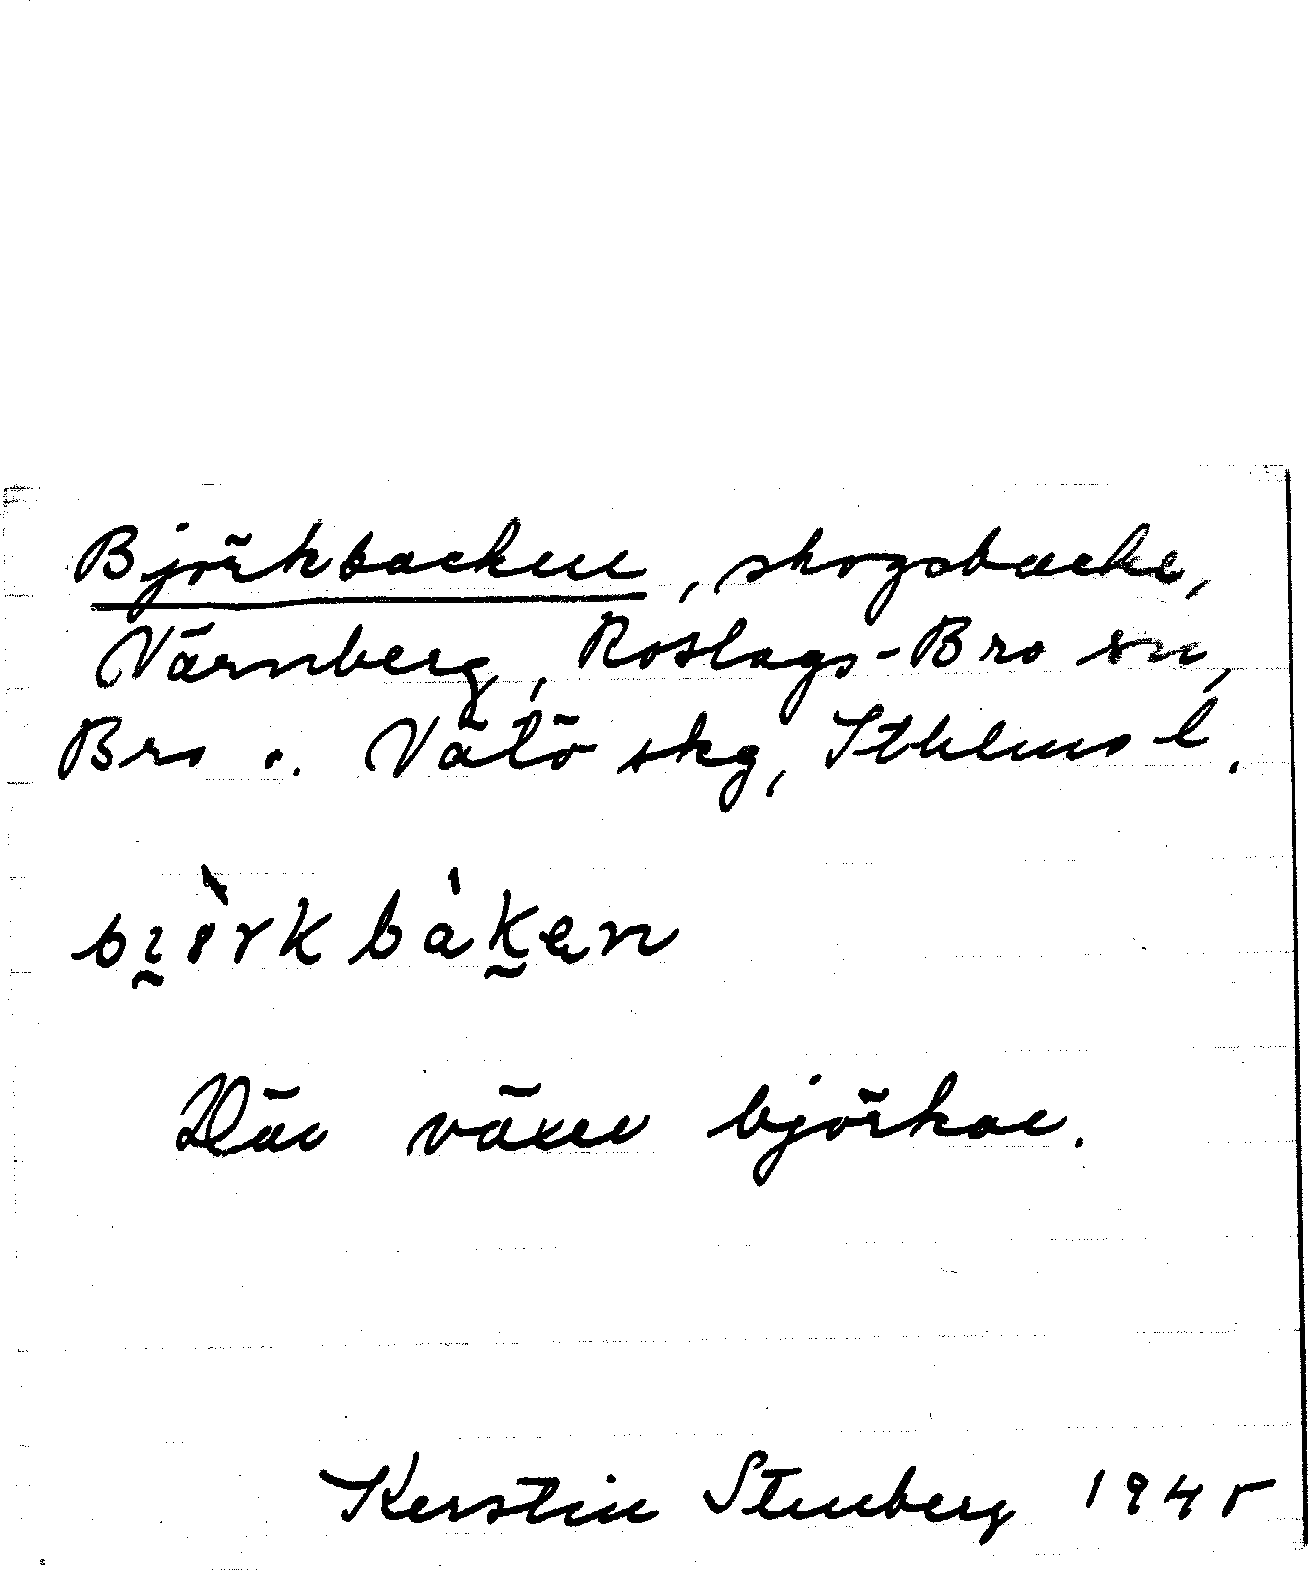 Björkbacken, skogsbacke,
Värnberg, Roslags-Bro sn,
Bro o. Vätö skg, Sthlms l.
bjö̀rkbàk̰en
Där växer björkar.
Kerstin Stenberg 1945